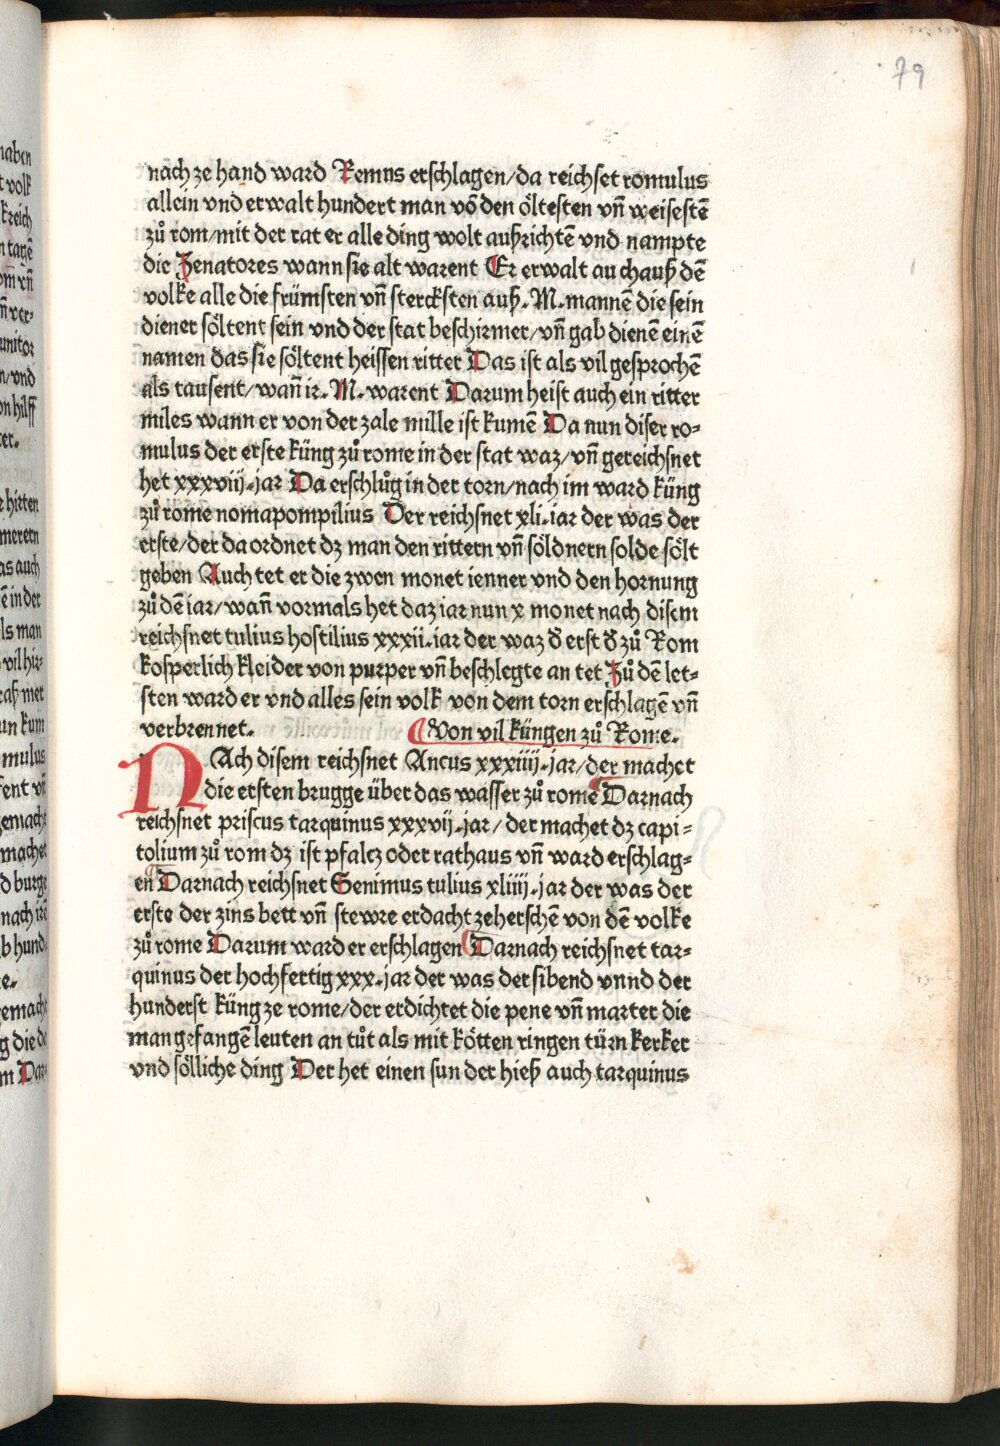 79
nach ze hand ward Remus erschlagen/da reichset romulus
allein vnd erwalt hundert man võ den öltesten vñ weisestẽ
zů rom/mit der rat er alle ding wolt außrichtẽ vnd nampte
die Zenatores wann sie alt warent Er erwalt auch auß dẽ
volke alle die frümsten vñ stercksten auß. M. mannẽ die sein
diener söltent sein vnd der stat beschirmer/vñ gab dienẽ einẽ
namen das sie söltent heissen ritter Das ist als vil gesprochẽ
als tausent/wañ ir. M. warent Darum heist auch ein ritter
miles wann er von der zale mille ist kumẽ Da nun diser ro-
mulus der erste küng zů rome in der stat waz/vñ gereichsnet
het xxxviij.jar Da erschlůg in der torn/nach im ward küng
zů rome nomapompilius Der reichsnet xli.iar der was der
erste/der da ordnet dz man den rittern vñ söldnern solde sölt
geben Auch tet er die zwen monet ienner vnd den hornung
zů dẽ iar/wañ vormals het daz iar nun x monet nach disem
reichsnet tulius hostilius xxxii.iar der waz d̕ erst d̕ zů Rom
kosperlich kleider von purper vñ beschlegte an tet Zů dẽ let-
sten ward er vnd alles sein volk von dem torn erschlagẽ vñ
verbrennet. Von vil küngen zů Rome.
NAch disem reichsnet Ancus xxxiiij.jar/der machet
die ersten brugge über das wasser zů rome Darnach
reichsnet priscus tarquinus xxxvij.jar/der machet dz capi-
tolium zů rom dz ist pfalcz oder rathaus vñ ward erschlag-
en Darnach reichsnet Senimus tulius xliiij.jar der was der
erste der zins bett vñ stewre erdacht ze herschẽ von dẽ volke
zů rome Darum ward er erschlagen Darnach reichsnet tar-
quinus der hochfertig xxx.jar der was der sibend vnnd der
hunderst küng ze rome/der erdichtet die pene vñ marter die
man gefangẽ leuten an tůt als mit kötten ringen türn kerker
vnd sölliche ding Der het einen sun der hieß auch tarquinus